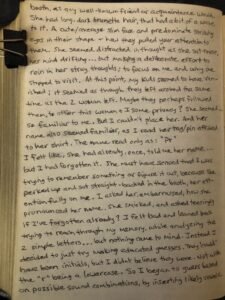 booth, as any well-known friend or acquaintance would.
She had long, dark brunette hair, that had a bit of a wave
to it. A cute/average skin tone and predominate striking
eyes, in their shape - how they pulled your attention to
them. She seemed distracted, I thought as she sat there,
her mind drifting... but making a deliberate effort to
rein in her stray thoughts; to focus on me and why she
stopped to visit. At this point, my kids seemed to have van-
ished; it seemed as though they left around the same
time as the 2 women left. Maybe they perhaps followed
them, to offer this woman & I some privacy? She seemed
so familiar to me. But I couldn't place her. And her
name also seemed familiar, as I read her tag/pin affixed
to her shirt. The name read only as: "Pr"
I felt like, she had already, once, told me her name...
but I had forgotten it. She must have sensed that I was
trying to remember something or figure it out, because she
perked up and sat straight-backed in the booth, her att-
ention fully on me. I asked her, embarrassed, how she
pronounced her name. She smirked, and asked teasingly
if I've forgotten already? I felt bad and leaned back
trying to reach through my memory, while analyzing the
2 simple letters... but nothing came to mind. Instead I
decided to just try making educated guesses. They could
have been initials, but I didn't believe they were. Not with
the "r" being a lowercase. So I began to guess based
on possible sound combinations, by inserting likely vowels